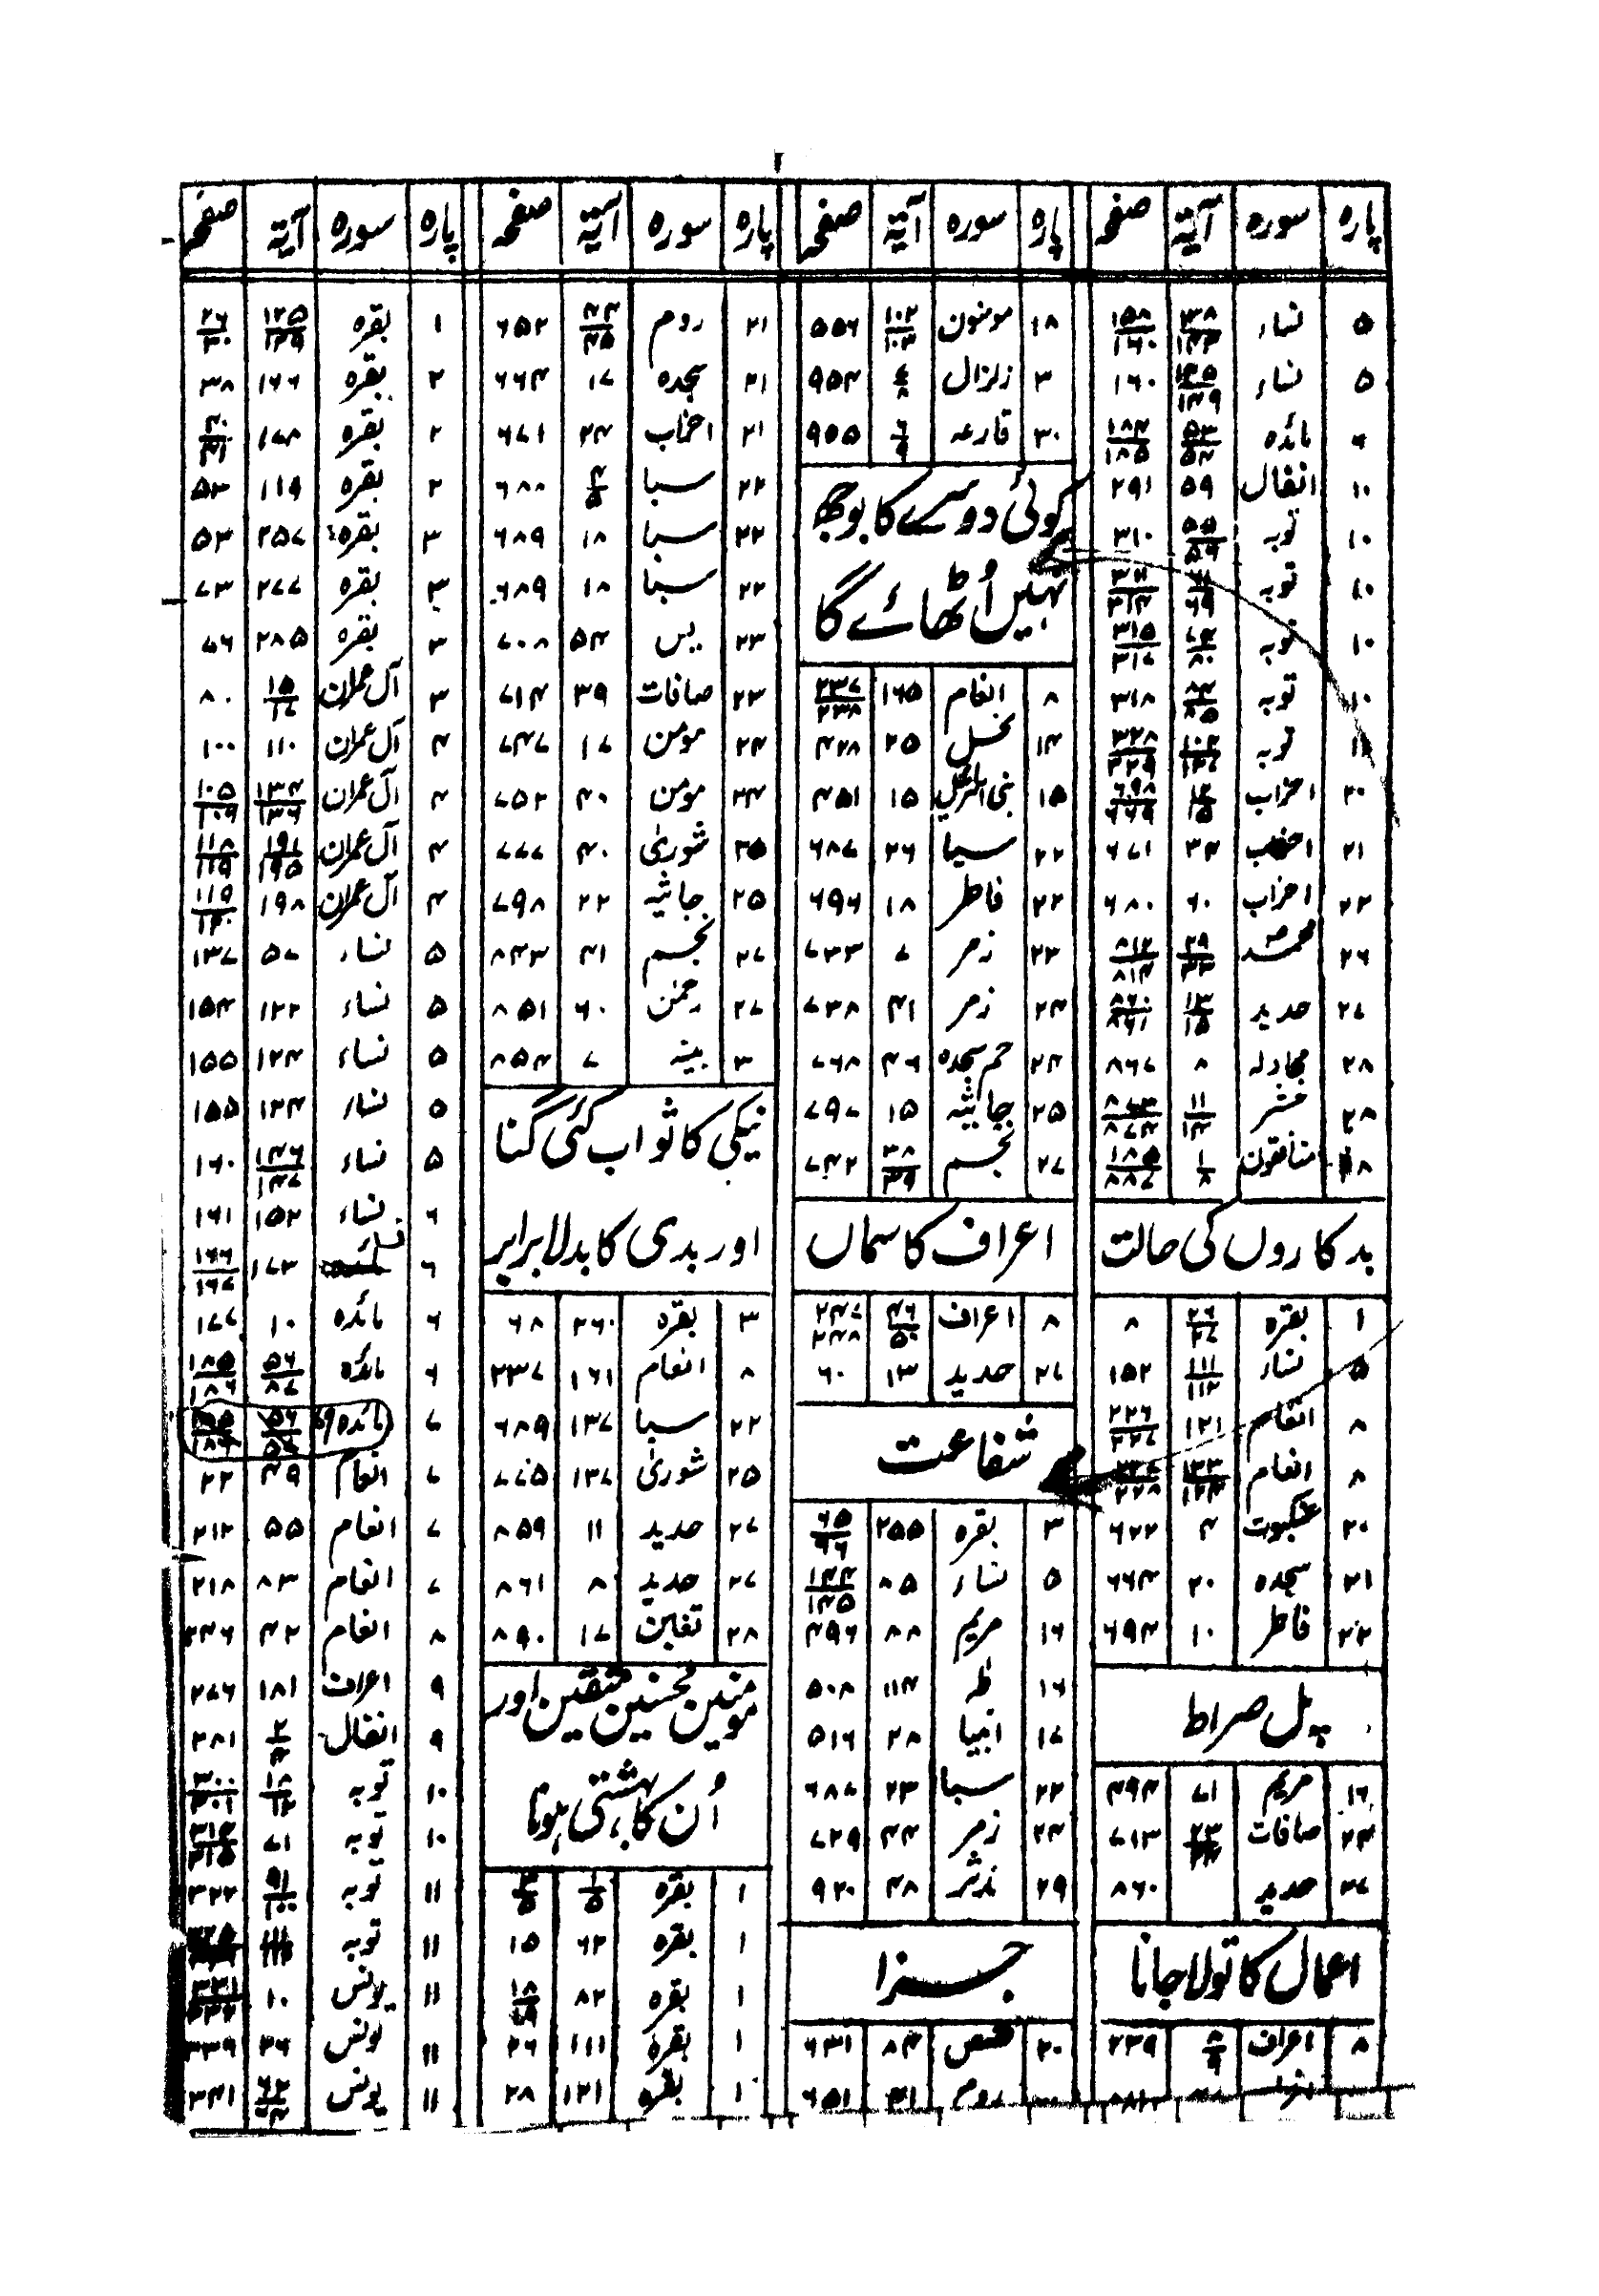 پارہ سورہ آیتہ صفحہ
۵ نساء ۱۳۸/۱۴۳ ۱۵۸/۱۶۰
۵ نساء ۱۴۵/۱۴۹ ۱۶۰
۶ مائدہ ۵۳/۵۴ ۱۸۴/۱۸۵
۱۰ انفال ۵۹ ۲۹۱
۱۰ توبہ ۵۵/۵۹ ۳۱۰
۱۰ توبہ
۱۰ توبہ ۷۴/۸۰ ۳۱۵/۳۱۷
۱۰ توبہ ۸۴/۸۵ ۳۱۸
توبہ ۳۲۸/۳۲۹
۲۰ احزاب ۱۲/۱۵
۲۱ احزاب ۲۴ ۶۷۱
۲۲ احزاب ۶۰ ۶۸۰
۲۶ محمد ۲۹/۳۳ ۸۱۲/۸۱۴
۲۷ حدید ۱۳/۱۵ ۸۶۰/۸۶۱
۲۸ مجادلہ ۸ ۸۶۷
۲۸ حشر ۱۱/۱۴ ۸۷۳/۸۷۴
منافقون ۱/۸
بدکاروں کی حالت
۱ بقرہ ۲۶/۲۷ ۸
۵ نساء ۱۱۱/۱۱۲ ۱۵۲
۸ انعام ۱۲۱ ۲۲۶/۲۲۷
۸ انعام ۱۲۳/۱۲۴ ۲۲۷/۲۲۸
۲۰ عنکبوت ۴ ۶۲۲
۲۱ سجدہ ۲۰ ۶۶۴
۲۲ فاطر ۱۰ ۶۹۴
پل صراط
۱۶ مریم ۷۱ ۴۹۴
۲۴ صافات ۷۱۳
۲۷ حدید ۸۶۰
اعمال کا تولا جانا
۸ اعراف ۸/۹ ۲۳۹
پارہ سورہ آیتہ صفحہ
۱۸ مومنون ۱۰۲/۱۰۳ ۵۵۶
۳ زلزال ۷/۸ ۹۵۴
۳۰ قارعہ ۶/۹ ۹۵۵
کوئی دوسرے کا بوجھ
نہیں اُٹھائے گا
۸ انعام ۱۶۵ ۲۳۷/۲۳۸
۱۴ نحل ۲۵ ۴۲۸
۱۵ بنی اسرائیل ۱۵ ۴۵۱
۲۲ سبا ۲۶ ۶۸۷
۲۲ فاطر ۱۸ ۶۹۶
۲۳ زمر ۷ ۷۳۳
۲۴ زمر ۴۱ ۷۳۸
۲۴ حم سجدہ ۴۶ ۷۶۸
۲۵ جاثیہ ۱۵ ۷۹۷
۲۷ نجم ۳۸/۳۹ ۷۴۲
اعراف کا سماں
۸ اعراف ۴۶/۵۰ ۲۴۷/۲۴۸
۲۷ حدید ۱۳ ۶۰
شفاعت
۳ بقرہ ۲۵۵ ۶۵/۹۶
۵ نساء ۸۵ ۱۴۴/۱۴۵
۱۶ مریم ۸۸ ۴۹۶
۱۶ طہ ۱۱۴ ۵۰۸
۱۷ انبیا ۲۸ ۵۱۶
۲۲ سبا ۲۳ ۶۸۷
۲۴ زمر ۴۴ ۷۲۹
۲۹ مدثر ۴۸ ۹۲۰
جزا
۲۰ قصص ۸۴ ۶۳۱
روم ۶۵۱
پارہ سورہ آیتہ صفحہ
۲۱ روم ۴۴/۴۵ ۶۵۲
۲۱ سجدہ ۱۷ ۶۶۴
۲۱ احزاب ۲۴ ۶۷۱
۲۲ سبا ۴/۵ ۶۸۸
۲۲ سبا ۱۸ ۶۸۹
۲۲ سبا ۱۸ ۶۸۹
۲۳ یس ۵۴ ۷۰۸
۲۳ صافات ۳۹ ۷۱۴
۲۴ مومن ۱۷ ۷۴۷
۲۴ مومن ۴۰ ۷۵۲
۲۵ شوریٰ ۴۰ ۷۷۷
۲۵ جاثیہ ۲۲ ۷۹۸
۲۷ نجم ۴۱ ۸۴۳
۲۷ رحمٰن ۶۰ ۸۵۱
۳ بینہ ۷ ۸۵۴
نیکی کا ثواب کئی گنا
اور بدی کا بدلا برابر
۳ بقرہ ۲۶۰ ۶۸
۸ انعام ۱۶۱ ۲۳۷
۲۲ سبا ۱۳۷ ۶۸۹
۲۵ شوریٰ ۱۳۷ ۷۷۵
۲۷ حدید ۱۱ ۸۵۹
۲۷ حدید ۸ ۸۶۱
۲۸ تغابن ۱۷ ۸۹۰
مومنین محسنین متقین اور
اُن کا بہشتی ہونا
۱ بقرہ ۱/۵
۱ بقرہ ۶۲ ۱۵
۱ بقرہ ۸۲ ۱۸/۱۹
۱ بقرہ ۱۱۱ ۲۶
۱ بقرہ ۱۲۱ ۲۸
پارہ سورہ آیتہ صفحہ
۱ بقرہ ۱۲۵/۱۲۹ ۲۶/۳۰
۲ بقرہ ۱۶۶ ۳۸
۲ بقرہ ۱۷۸ ۴۰/۴۱
۲ بقرہ ۱۱۹ ۵۳
۳ بقرہ ۲۵۷ ۵۳
۳ بقرہ ۲۷۷ ۷۳
۳ بقرہ ۲۸۵ ۷۶
۳ آل عمران ۱۵/۱۷ ۸۰
۴ آل عمران ۱۱۰ ۱۰۰
۴ آل عمران ۱۳۴/۱۳۶ ۱۰۵/۱۰۹
۴ آل عمران ۱۹۱/۱۹۵ ۱۱۸/۱۱۹
۴ آل عمران ۱۹۸ ۱۱۹/۱۲۰
۵ نساء ۵۷ ۱۳۷
۵ نساء ۱۲۲ ۱۵۴
۵ نساء ۱۲۴ ۱۵۵
۵ نساء ۱۲۴ ۱۵۵
۵ نساء ۱۴۶/۱۴۷ ۱۶۰
۶ نساء ۱۵۲ ۱۶۱
۶ نساء ۱۷۳ ۱۶۶/۱۶۷
۶ مائدہ ۱۰ ۱۷۷
۶ مائدہ ۵۶/۸۷ ۱۸۵/۱۸۶
۷ مائدہ ۶۹
۷ انعام ۴۹ ۲۲
۷ انعام ۵۵ ۲۱۲
۷ انعام ۸۳ ۲۱۸
۸ انعام ۴۲ ۲۴۶
۹ اعراف ۱۸۱ ۲۷۶
۹ انفال ۲/۴ ۲۸۱
۱۰ توبہ ۱۸/۱۲ ۳۰۰/۳۰۱
۱۰ توبہ ۷۱ ۳۱۴/۳۱۵
۱۱ توبہ ۹۱/۱۰۰ ۳۲۲
۱۱ توبہ
۱۱ یونس ۱۰ ۳۳۱/۳۳۲
۱۱ یونس ۲۶ ۳۳۹
۱۱ یونس ۶۲/۶۴ ۳۴۱